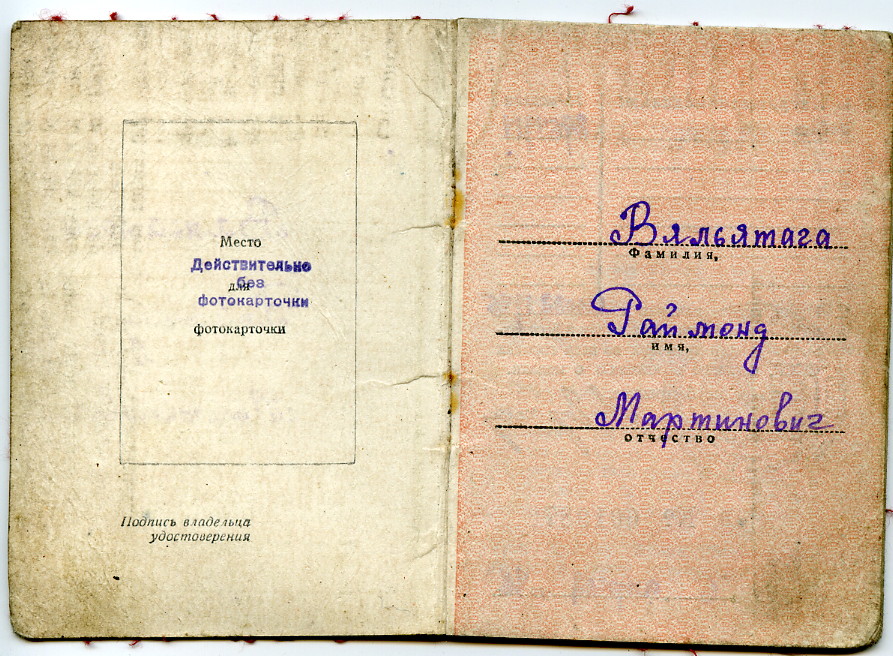 Место
Действительно
для
без
фотокарточки
фотокарточки
Подпись владельца
удостоверения
Вяльятага
Фамилия,
Раймонд
имя,
Мартинович
отчество